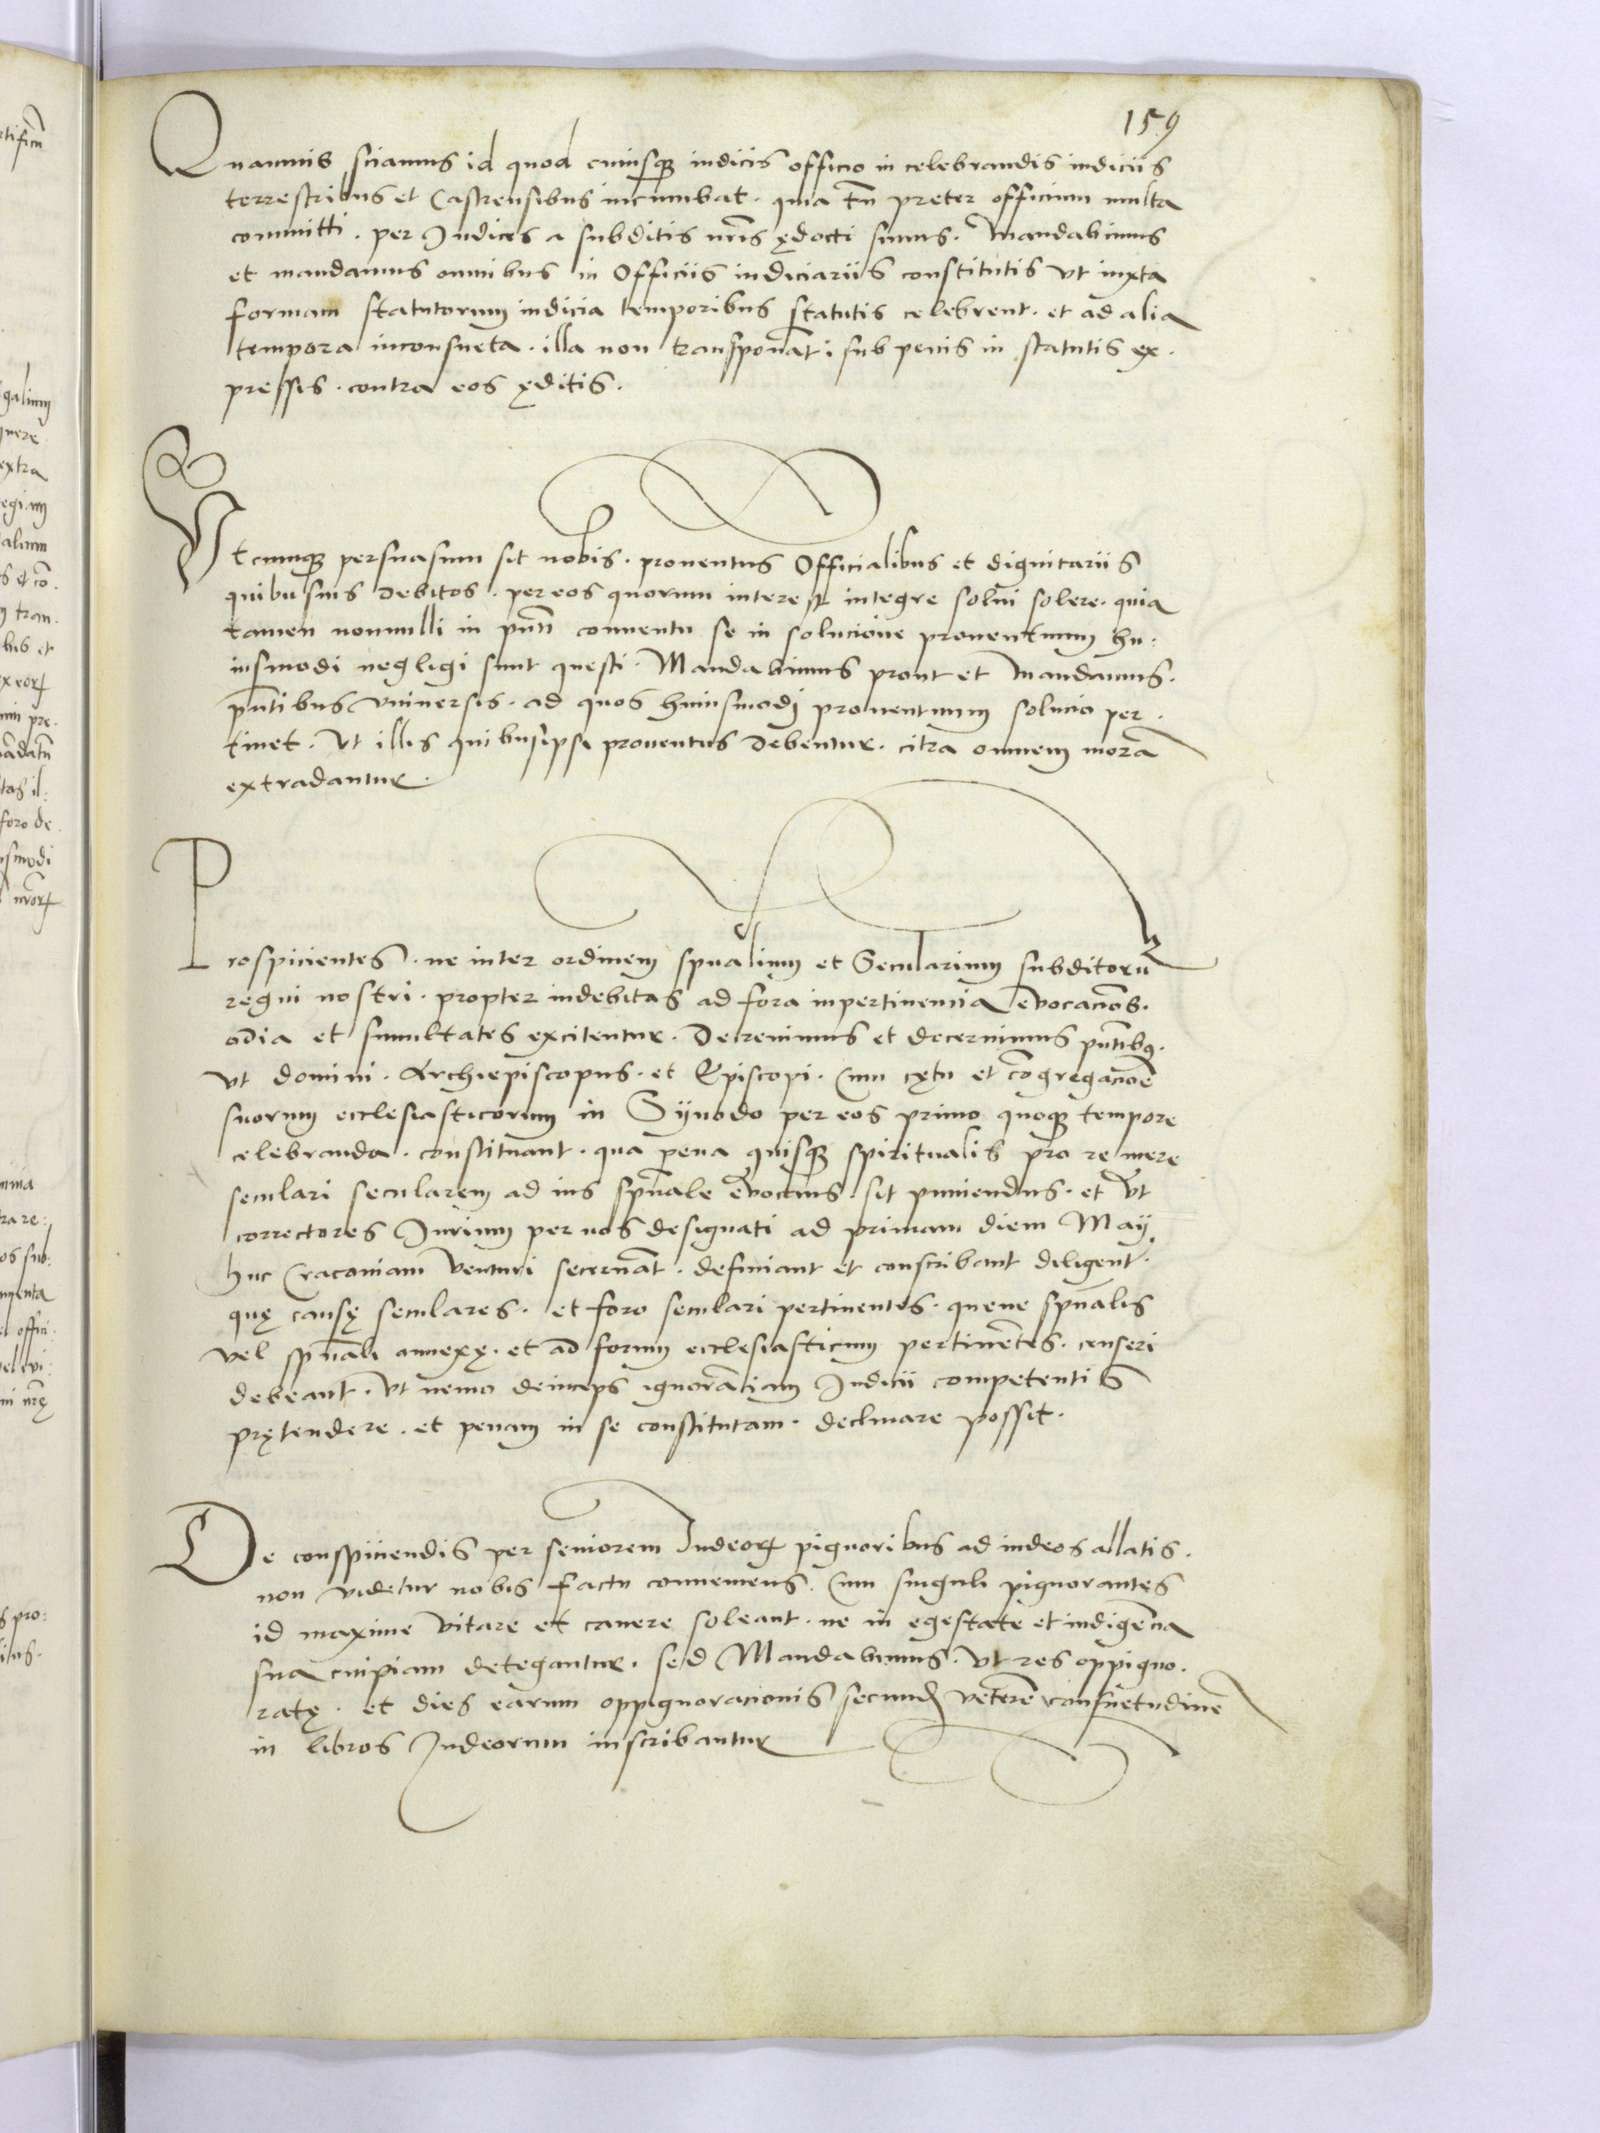 159
Quamuis sciamus id quod cuiusqꝫ iudicis officio in celebrandis iudiciis
terrestribus et Castrensibus incumbat. quia tn̄ preter officium multa
committi. per Iudices a subditis nr̄is ędocti sumus. Mandabimus
et mandamus omnibus in Officiis iudiciariis constitutis vt iuxta
formam statutorum iudicia temporibus statutis celebrent. et ad alia
tempora inconsueta. illa non transponāt: sub penis in statutis ex.
pressis. contra eos ęditis.
Vtcumqꝫ persuasum sit nobis. prouentus Officialibus et dignitariis
quibusuis debitos. per eos quorum interest integre solui solere. quia
tamen nonnulli in pn̄ti conuentu se in solucione prouentuum hu.
iusmodi negligi sunt questi. Mandabimus prout et mandamus.
pn̄tibus vniuersis. ad quos huiusmodi prouentuum solucio per.
tinet. Vt illis quibus ipsi prouentus debentur. citra omnem morā
extradantur.
Prospicientes. ne inter ordinem spualium et Secularium subditorū
regni nostri. propter indebitas ad fora inpertinencia evocacōes.
odia et simultates excitentur. Decreuimus et decernimus pn̄tibꝫ.
vt domini. Archiepiscopus. et Episcopi. Cum cętu et cōgregacioē
suorum ecclesiasticorum in Synodo per eos primo quoqꝫ tempore
celebranda. constituant. qua pena quisqꝫ spiritualis pro re mere
seculari secularem ad ius spūale evocans. sit puniendus. et vt
correctores Iurium per nos designati ad primam diem Maij
huc Cracouiam venturi secernāt. definiant et conscribant diligent̄.
quę causę seculares. et foro seculari pertinentes. queue spūales
vel spūali annexę. et ad forum ecclesiasticum pertinētes. censeri
debeant. Vt nemo deinceps ignorātiam Iudicii competentis
prętendere. et penam in se constitutam. declinare possit.
De conspiciendis per seniorem Iudeorꝝ pignoribus ad iudeos allatis.
non videtur nobis factu conueniens. Cum singuli pignorantes
id maxime vitare et cauere soleant. ne in egestate et indigēcia
sua cuipiam detegantur. sed Mandabimus. Vt res oppigno.
ratę. et dies earum oppignoracionis secundꝫ veterē consuetudinē
in libros Iudeorum inscribantur